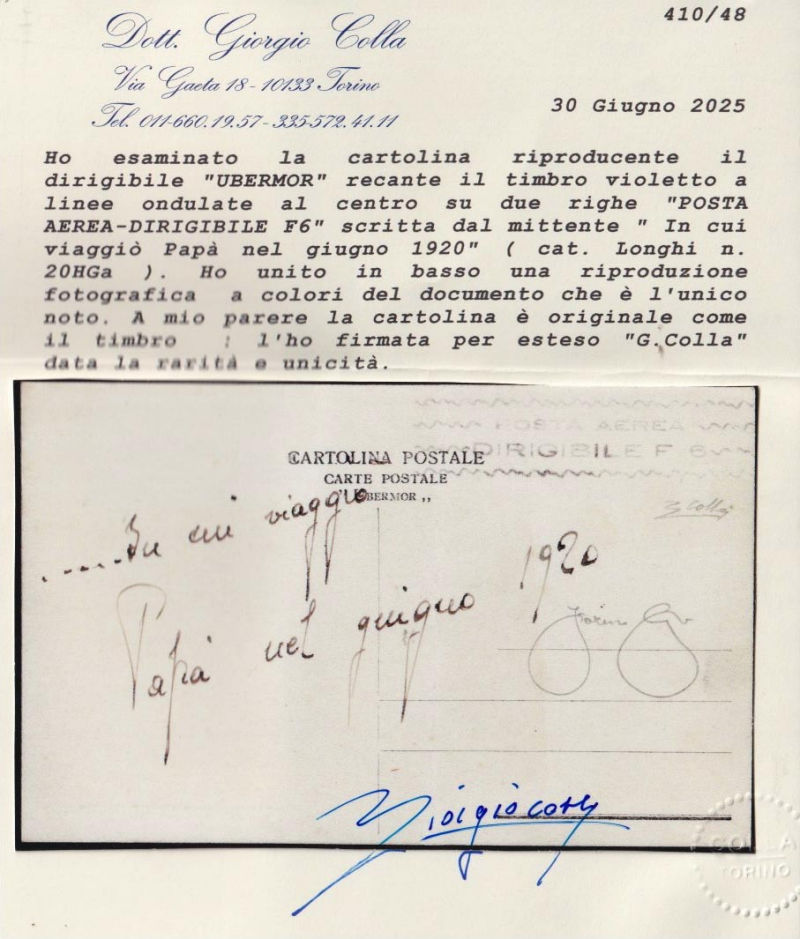 410/48
Dott. Giorgio Colla
Via Gaeta 18 - 10133 Torino
Tel. 011-660.19.57 - 335-572.41.11
30 Giugno 2025
Ho esaminato la cartolina riproducente il
dirigibile "UBERMOR" recante il timbro violetto a
linee ondulate al centro su due righe "POSTA
AEREA-DIRIGIBILE F6" scritta dal mittente " In cui
viaggiò Papà nel giugno 1920" ( cat. Longhi n.
20HGa ). Ho unito in basso una riproduzione
fotografica a colori del documento che è l'unico
noto. A mio parere la cartolina è originale come
il timbro : l'ho firmata per esteso "G.Colla"
data la rarità e unicità.
POSTA AEREA
DIRIGIBILE F 6
CARTOLINA POSTALE
CARTE POSTALE
"UBERMOR „
G Colla
.....In cui viaggio
Papà nel giugno 1920
Giorgio Colla
COLLA
TORINO